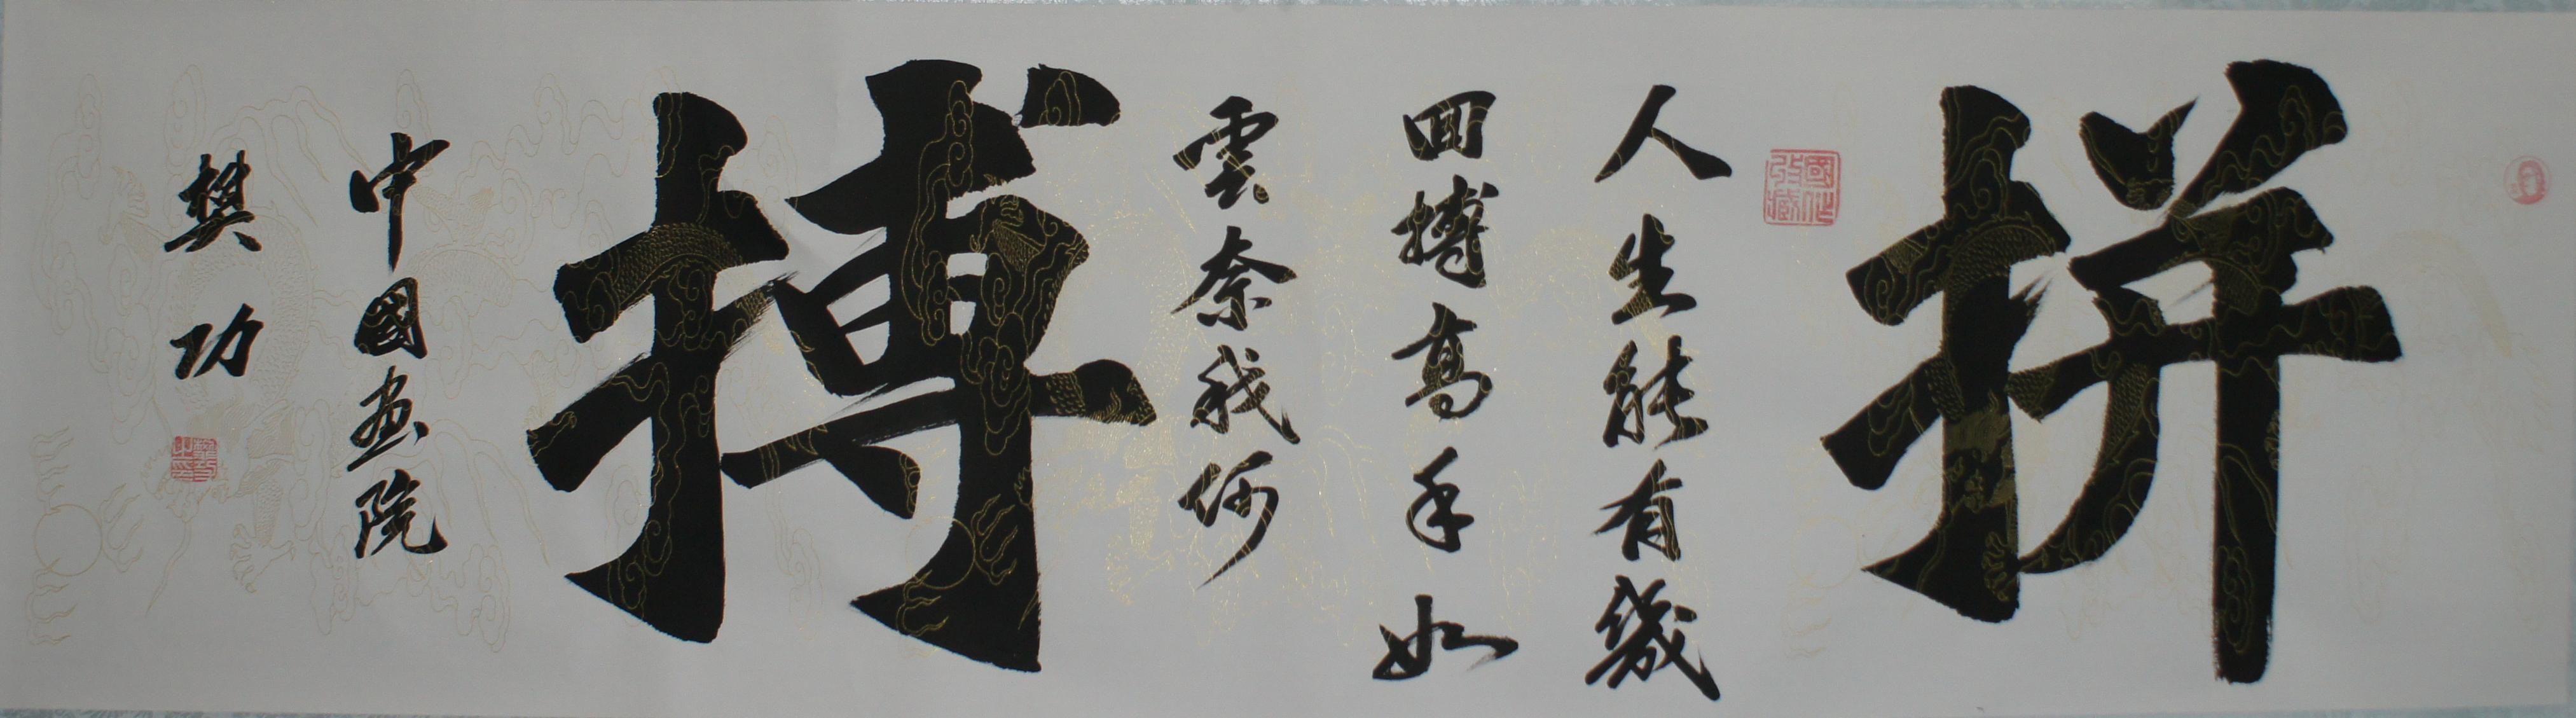 拼
人生能有幾
回搏高手如
雲奈我何
搏
中國畫院
樊功